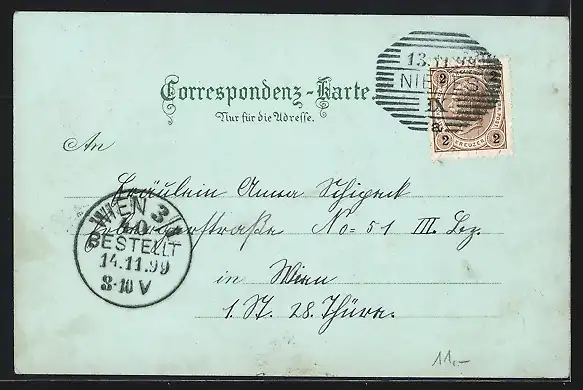 13.11.99
2 2
IX
a
KREUZER
2 2
Correspondenz-Karte.
Nur für die Adresse.
An
Fräulein Anna Schipeck
No 51 III. Bez.
in Wien
1. St. 28. Thüre.
WIEN 3/
40
BESTELLT
14.11.99
8-10 V
11.-